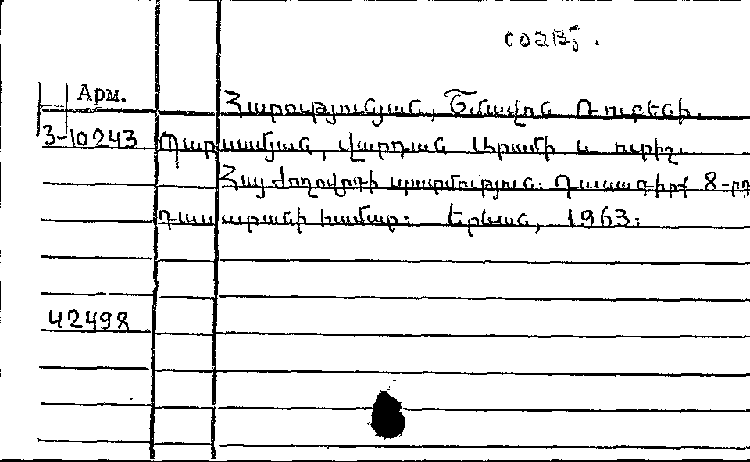 Арм.
Հարությունյան, Շմավոն Ռուբենի.
3-10243 Պարսամյան, Վարդան Արամի և ուրիշ.
Հայ ժողովրդի պատմություն: Դասագիրք 8-րդ
դասարանի համար: Երևան, 1963:
42498